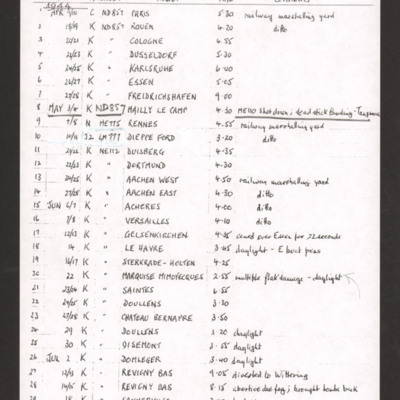 1944
1 APR 9/10 C ND857 PARIS 5.30 railway marshalling yard
2 18/19 K ND857 ROUEN 4.20 ditto
3 K " COLOGNE 4.55
4 22/23 K " DUSSELDORF 4.30
5 K " KARLSRUHE 6.00
6 26/27 K " ESSEN 5.05
7 27/28 K " FREIDRICHSHAFEN 9.00
8 MAY 3/4 K ND857 MAILLY LE CAMP 4.30 ME110 shot down; dead stick landing -
9 7/8 N ME775 RENNES 4.55 railway marshalling yard
10 J2 LM777 DIEPPE FORD 3.20 ditto
11 21/22 K NE112 DUISBERG 4.35
12 22/23 K " DORTMUND 4.30
13 24/25 K " AACHEN WEST 4.50 railway marshalling yard
14 27/28 K " AACHEN EAST 4.30 ditto
15 JUN 6/7 K " ACHERES 4.00 ditto
16 7/8 K " VERSAILLES 4.10 ditto
17 12/13 K " GELSENKIRCHEN 4.35 coned over Essen for 22 seconds
18 14 K " LE HAVRE 3.45 daylight - E boat pens
19 16/17 K " STERKRADE-HOLTEN 4.25
20 22 K " MARQUISE MIMOYECQUES 2.55 multiple flak damage - daylight
21 K " SAINTES 6.55
22 24/25 K " DOULLENS 3.20
23 27/28 K " CHATEAU BERNAPRE 3.50
24 29 K " DOULLENS 3.20 daylight
25 30 K " OISEMONT 3.55 daylight
26 JUL 2 K " DOMLEGER 3.40 daylight
27 12/13 K " REVIGNY BAS 9.05 diverted to Wittering
28 14/15 K " REVIGNY BAS 8.15 abortive due fog; brought bombs back